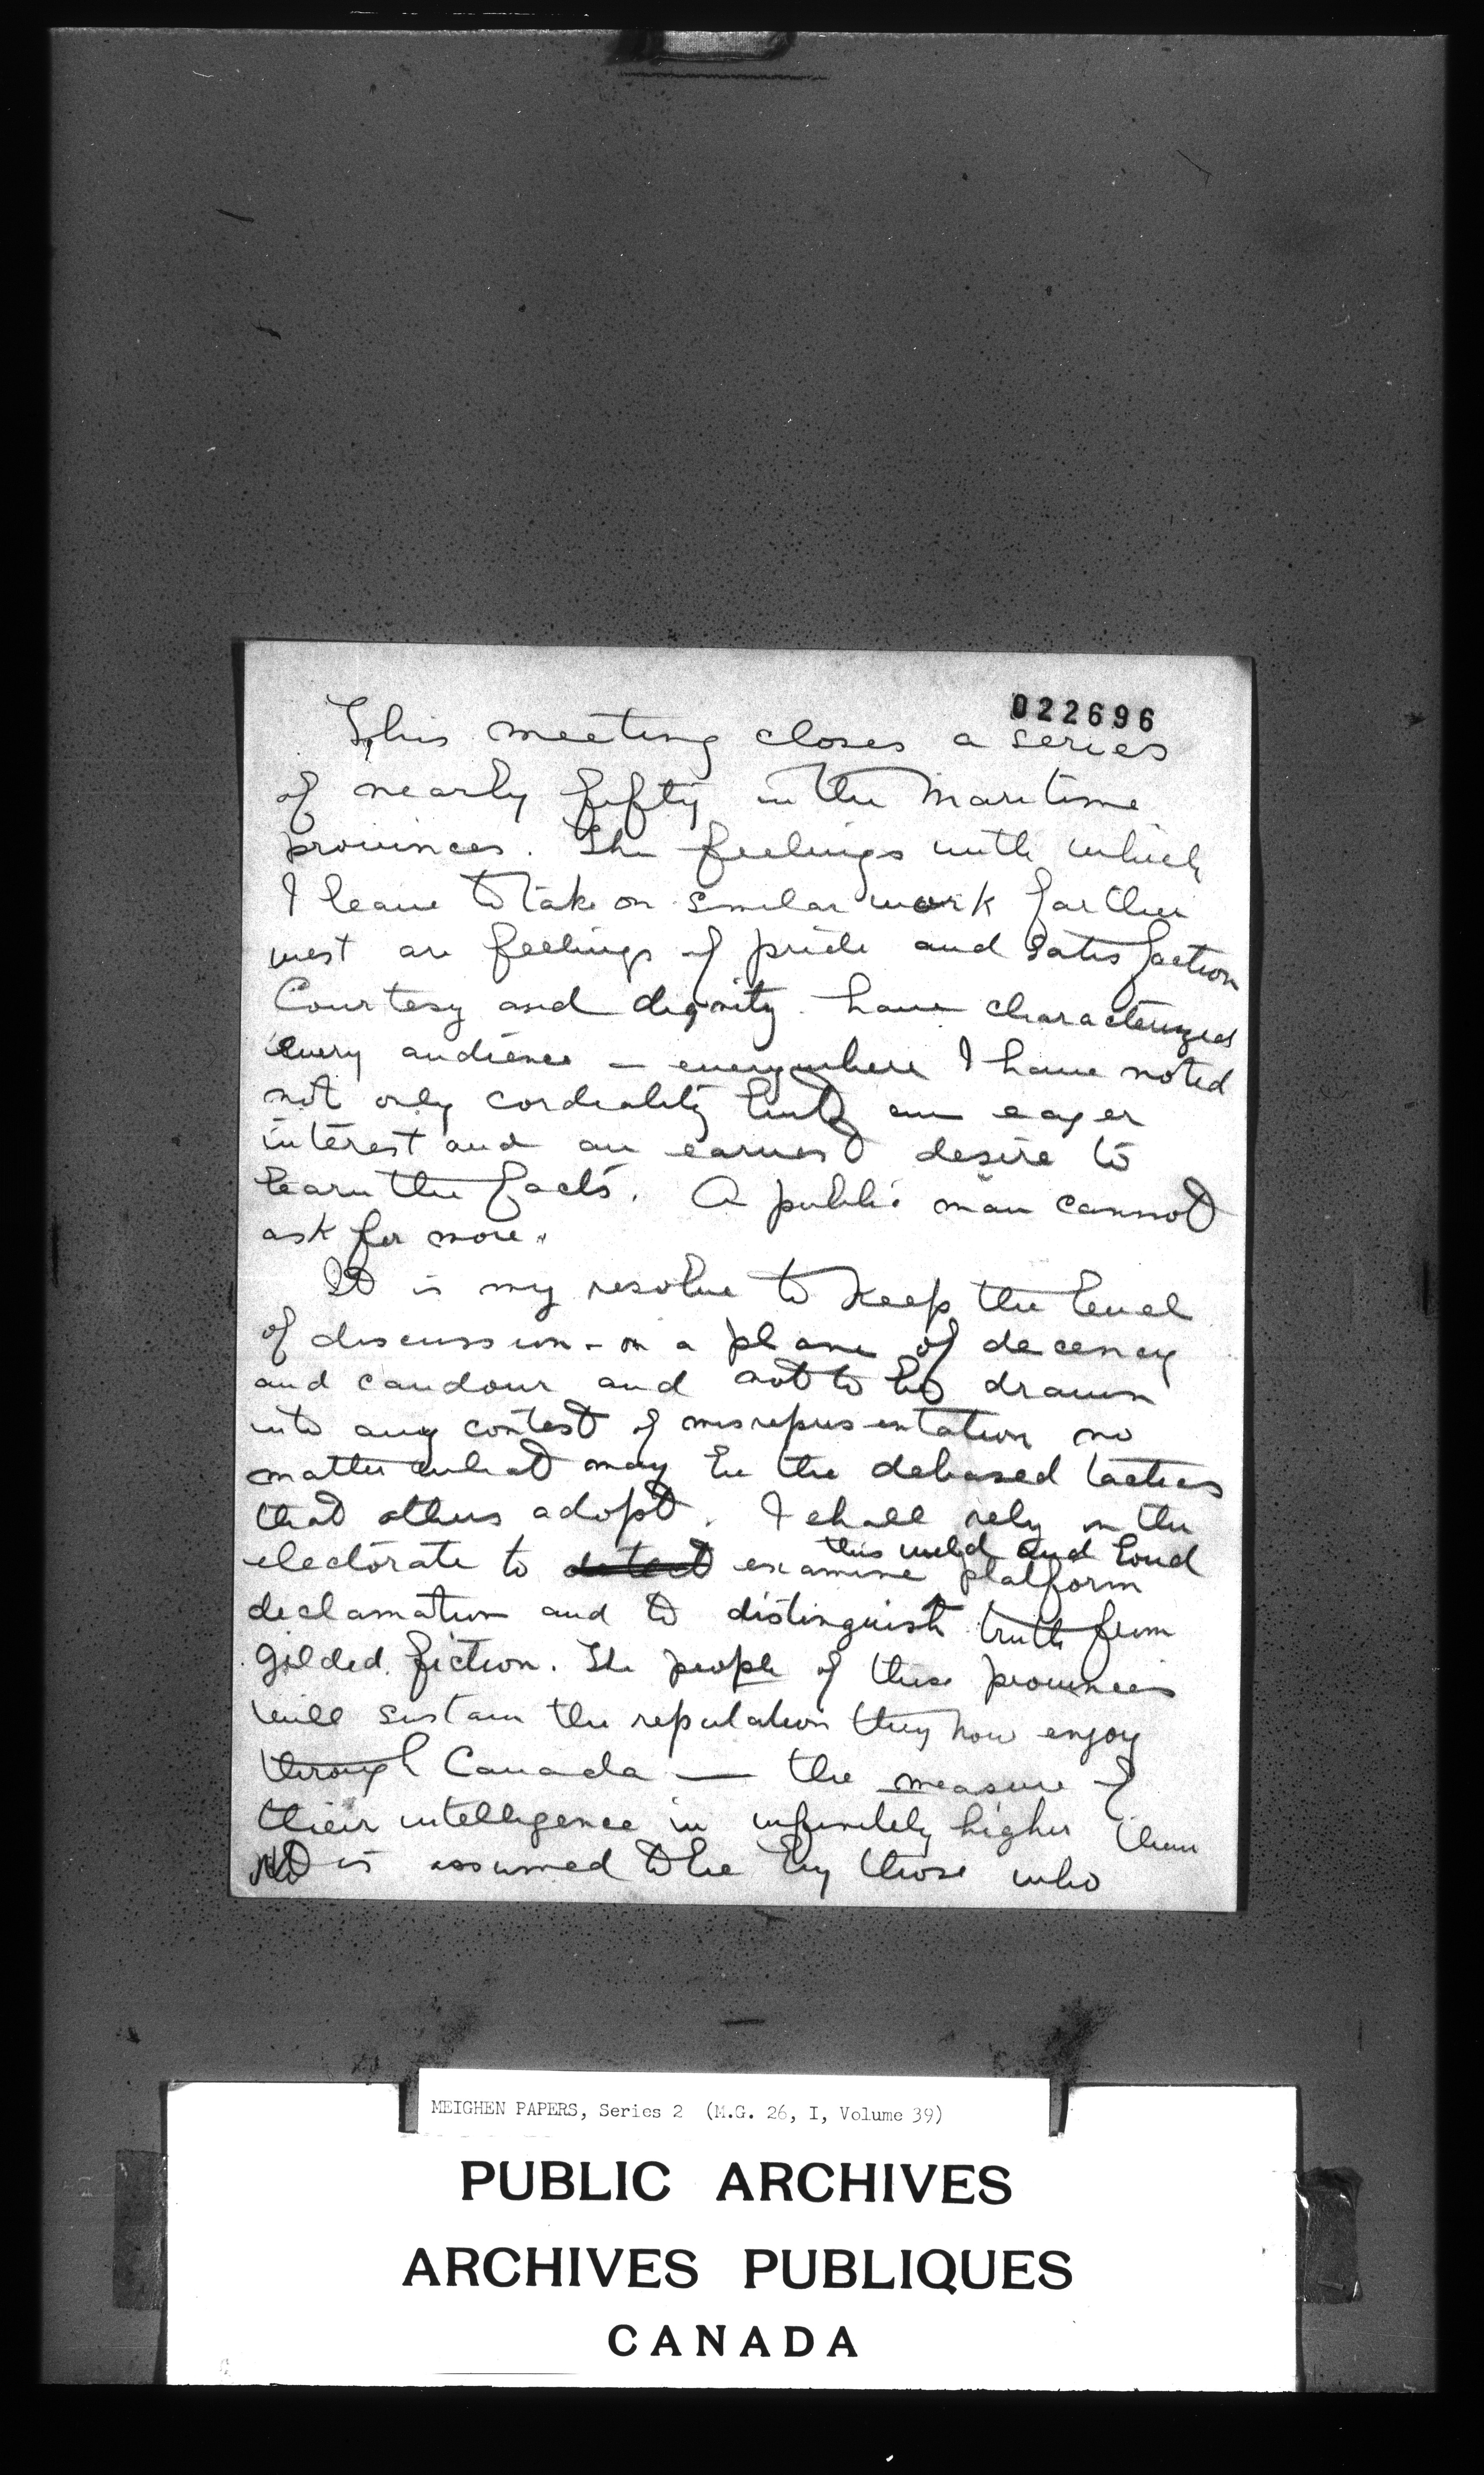 022696
This meeting closes a series
of nearly fifty in the Maritime
provinces. The feelings with which
I leave to take on similar work farther
west are feelings of pride and satisfaction
Courtesy and dignity have characterized
every audience – everywhere I have noted
not only cordiality but an eager
interest and an earnest desire to
learn the facts. A public man cannot
ask for more.
It is my resolve to keep the level
of discussion on a plane of decency
and candour and not to be drawn
into any contest of misrepresentation no
matter what may be the debased tactics
that others adopt. I shall rely on the
this wild and loud
electorate to detect examine platform
declamation and to distinguish truth from
gilded fiction. The people of these provinces
will sustain the reputation they now enjoy
through Canada — the measure of
their intelligence is infinitely higher than
it is assumed to be by those who
MEIGHEN PAPERS, Series 2 (M.G. 26, I, Volume 39)
PUBLIC ARCHIVES
ARCHIVES PUBLIQUES
CANADA